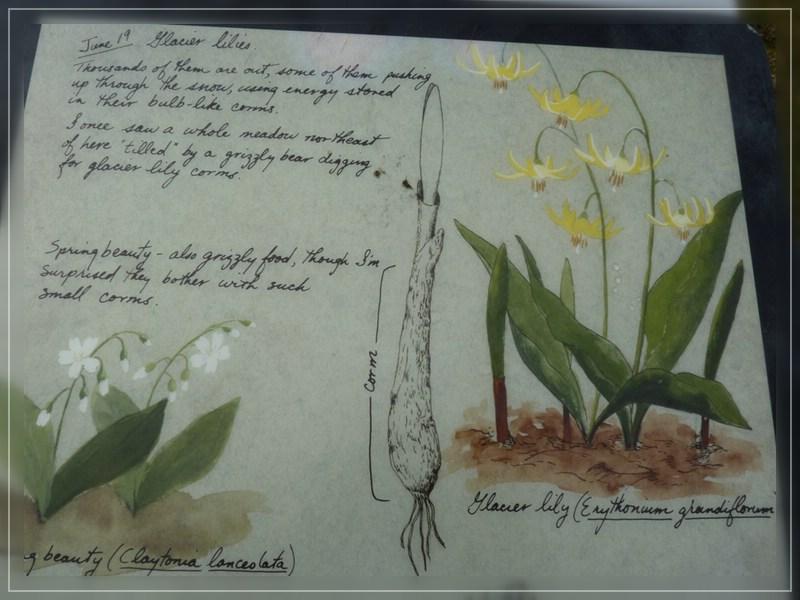 June 19 Glacier lilies.
Thousands of them are out, some of them pushing
up through the snow, using energy stored
in their bulb-like corms.
I once saw a whole meadow northeast
of here "tilled" by a grizzly bear digging
for glacier lily corms.
Springbeauty - also grizzly food, though I'm
surprised they bother with such
small corms.
corm
Glacier lily (Erythonium grandiflorum
g beauty (Claytonia lanceolata)